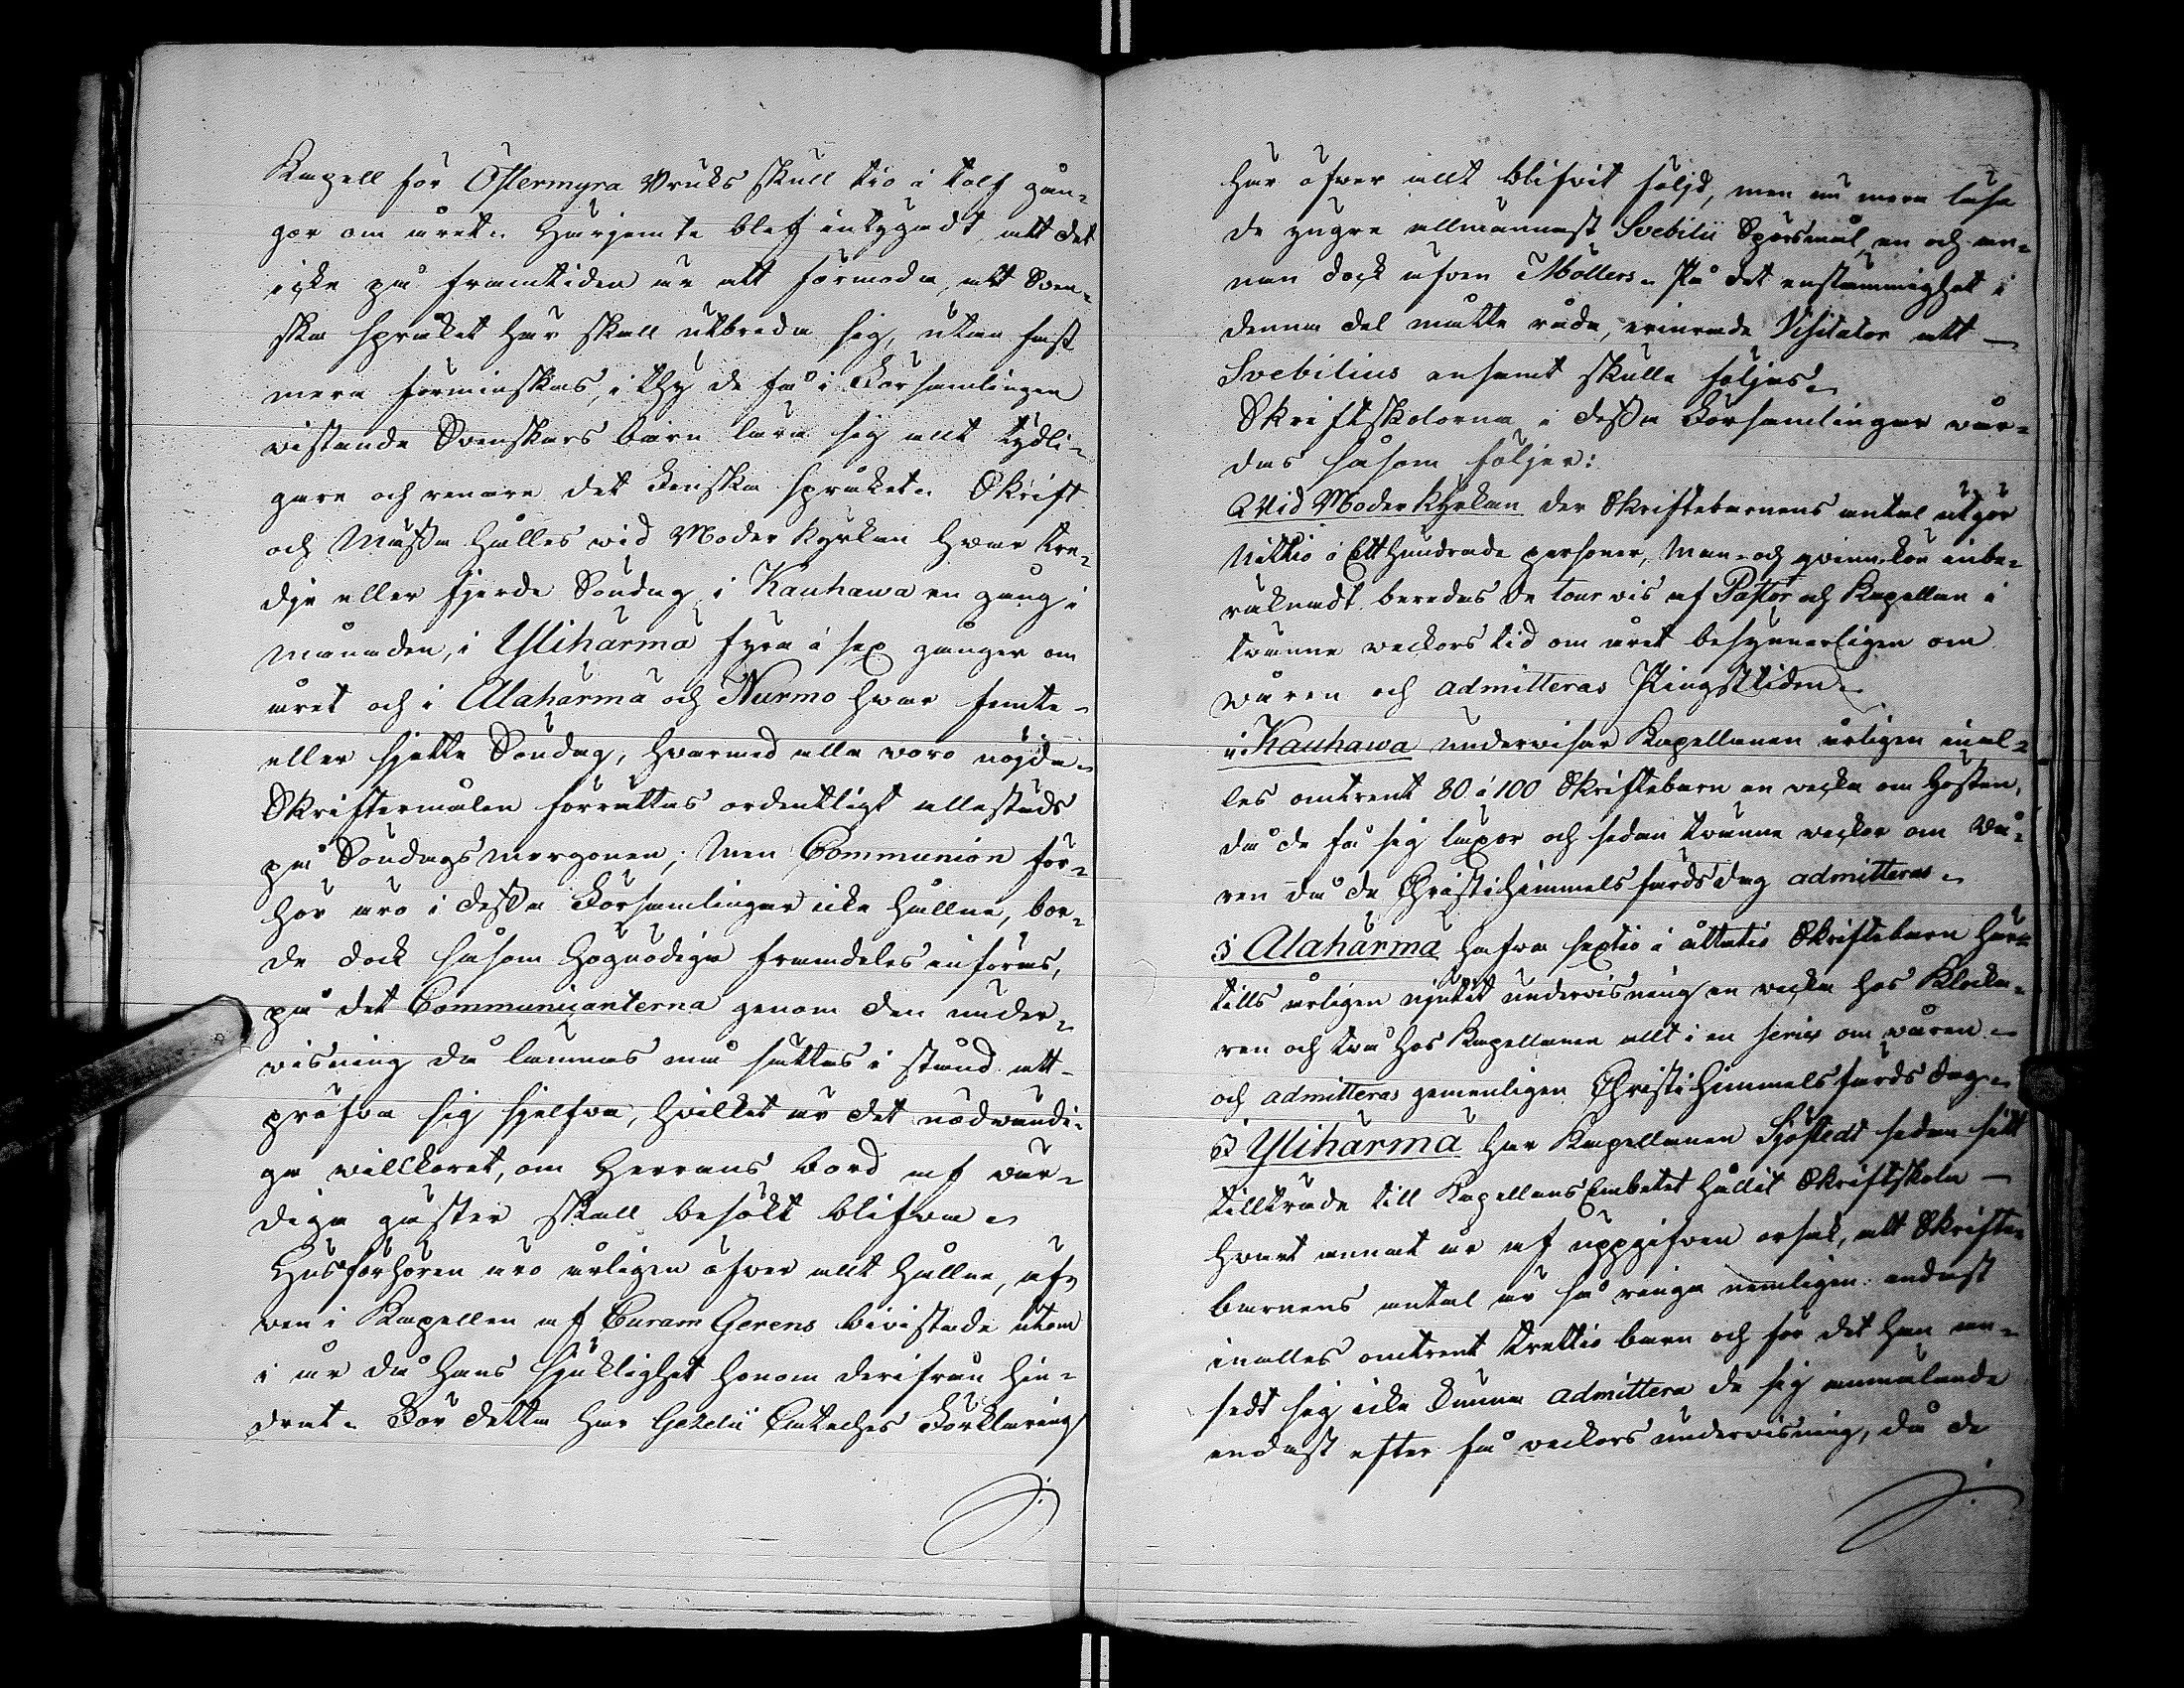 Kapell för Östermyra Bruks skull tio á tolf gån-
gor om året. Härjemte blef intygadt att det
icke på framtiden är att förmoda, att Sven-
ska språket här skall utbreda sig, utan fast
mera förminskas, i thy de få i Församlingen
vistande Svenskars barn lära sig allt tydli-
gare och renare det Finska språket. Skrift
och Mässa hålles vid Moder Kyrkan hvar tre-
dje eller fjerde Söndag, i Kauhawa en gång i
månaden, i Yliharmä fyra á sex gånger om
året och i Alahärmä och Nurmo hvar femte-
eller sjette Söndag, hvarmed alla voro nöjda.
Skriftermålen förrättas ordentligt allestäds
på Söndags morgonen; Men Communion för-
hör äro i dessa Församlingar icke hållne, bor-
de dock såsom högnödiga framdeles införas,
på det Communicanterna genom den under-
visning då lämnas må sättas i stånd att
pröfva sig sjelfva, hvilket är det nödvändi-
ga villkoret, om Herrans bord af vär-
diga gäster skall besökt blifva.
Husförhören äro årligen öfver allt hållne, äf-
ven i Kapellen af Curam Gerens bivistade utom
i år då hans sjuklighet honom derifrån hin-
drat. För detta har Gezelii Cateches Förklaring
här öfver allt blifvit följd, men nu mera läsa
de yngre allmännast Svebilii Spörsmål, en och an-
nan dock äfven Möllers. På det enstämmighet i
denna del måtte råda, erinrade Visitator att
Svebilius ensamt skulle följas.
Skriftskolorna i dessa Församlingar vår-
das såsom följer:
Vid Moder Kyrkan der Skriftebarnens antal utgör
Nittio á Ett hundrade personer, Man- och qvinnkön inbe-
räknadt beredas de tour vis af Pastor och Kapellan i
tvänne veckors tid om året besynnerligen om
våren och admitteras Pingsttiden.
i Kauhawa undervisar Kapellanen årligen inal-
les omtrent 80 á 100 Skriftebarn en vecka om hösten,
då de få sig läxor och sedan tvänne veckor om vå-
ren då de Christi himmelsfärds dag admitteras.
i Alahärmä hafva sextio á åttatio Skriftebarn här-
tills årligen njutit undervisning en vecka hos Klocka-
ren och två hos Kapellanen allt i en series om våren
och admitteras gemenligen Christi Himmelsfärds dag.
i Ylihärmä har Kapellanen Sjöstedt sedan sitt
tillträde till Kapellans Embetet hållit Skriftskola
hvart annat år af uppgifven orsak, att Skrifte-
barnens antal är så ringa nemligen endast
inalles omtrent trettio barn och för det han an-
sedt sig icke kunna admittera de sig anmälande
endast efter få veckors undervisning, då de